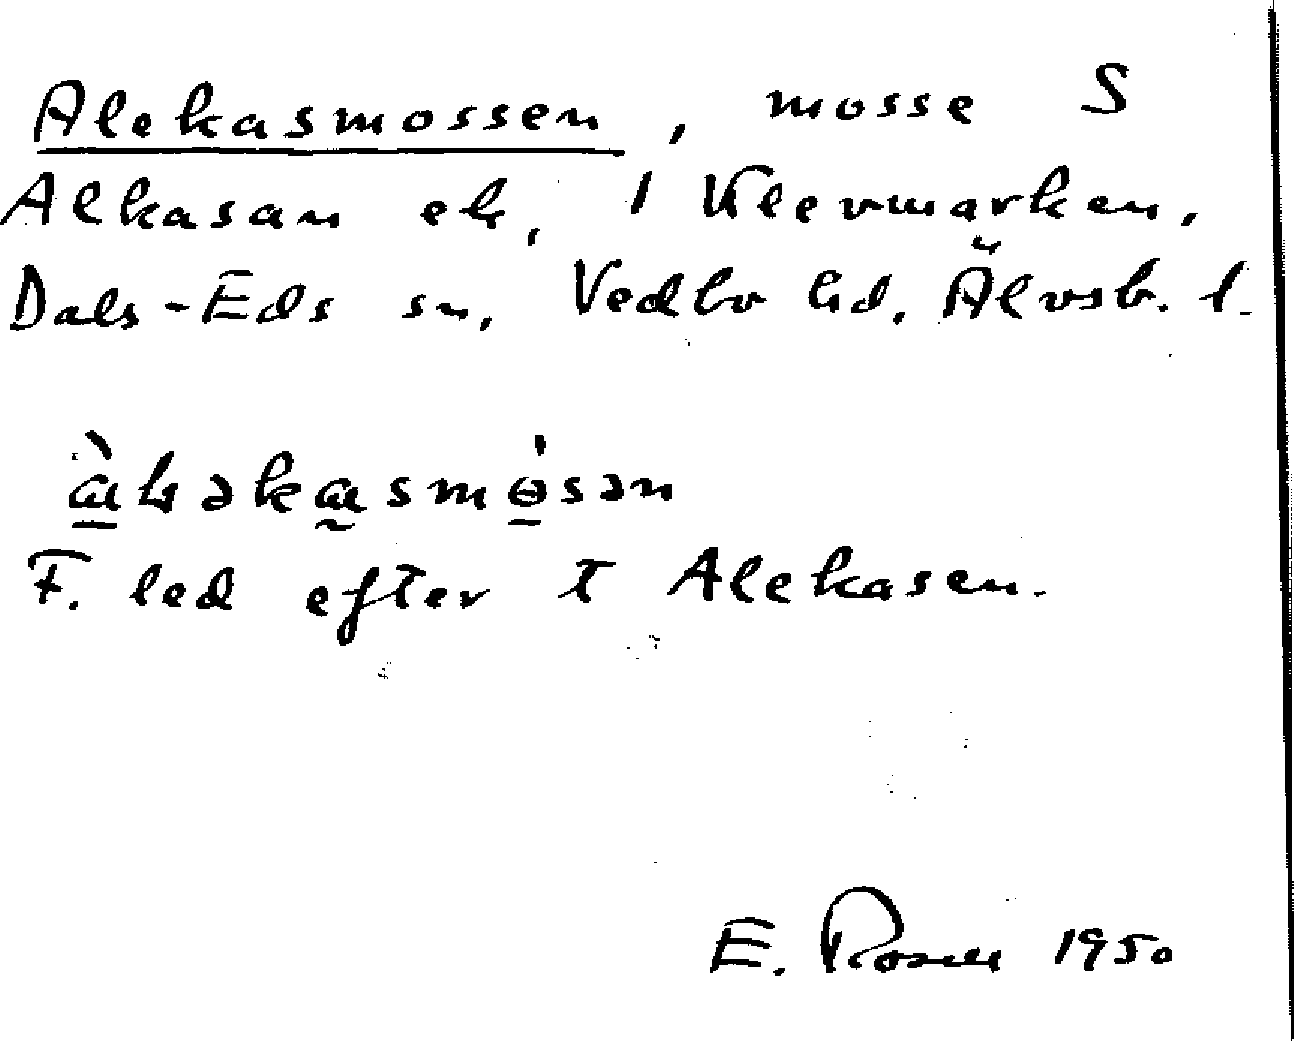 Alekasmossen, mosse S
Alkasan ek, 1 Klevmarken,
Dals-Eds sn, Vedbo hd, Älvsb. l.
F. led efter t Alekasen.
E. 1950